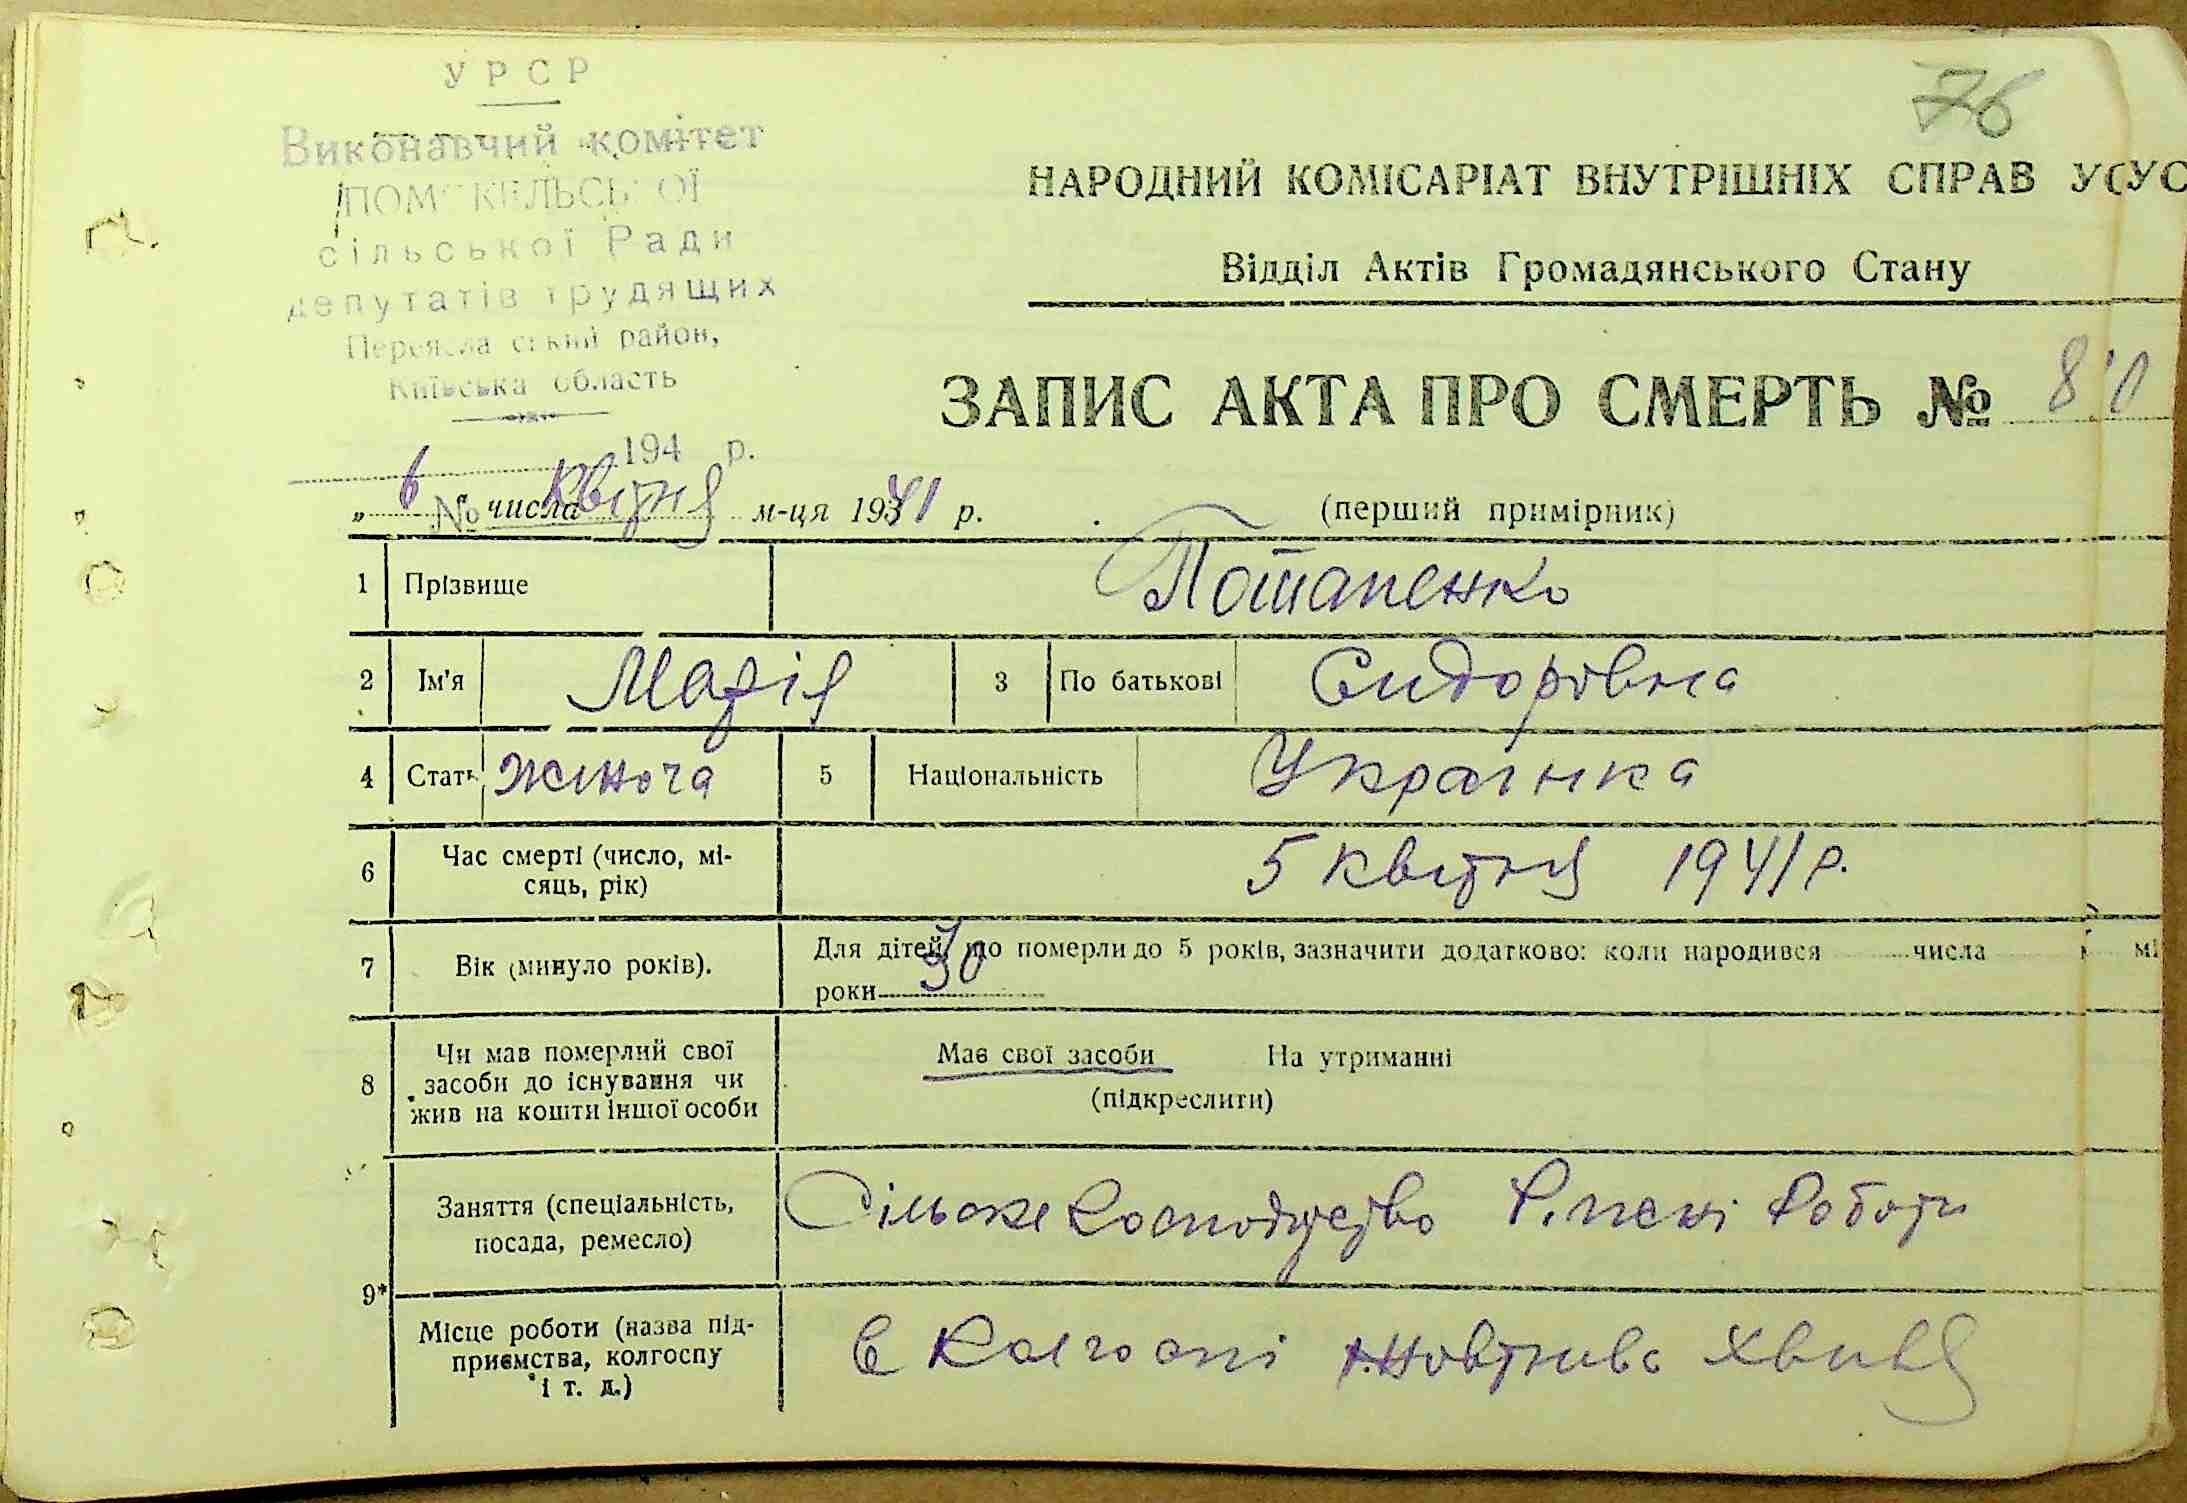 76
УРСР
Виконавчий комітет
сільської Ради
депутатів трудящих
район,
Київська область
194 р.
№
НАРОДНИЙ КОМІСАРІАТ ВНУТРІШНІХ СПРАВ
Відділ Актів Громадянського Стану
ЗАПИС АКТА ПРО СМЕРТЬ № 80
„ 6 числа квітня м-ця 1941 р.
(перший примірник)
1 Прізвище Потапенко
2 Ім'я Марія 3 По батькові Сидорівна
4 Стать жіноча 5 Національність Українка
6 Час смерті (число, мі-
сяць, рік) 5 квітня 1941 р.
7 Вік (минуло років). Для дітей, що померли до 5 років, зазначити додатково: коли народився числа мі
роки 30
8 Чи мав померлий свої
засоби до існування чи
жив на кошти іншої особи
Має свої засоби На утриманні
(підкреслити)
9*
Заняття (спеціальність,
посада, ремесло)
Сільське господарство роботи
Місце роботи (назва під-
приємства, колгоспу
і т. д.)
в колгоспі Жовтнева Хвиля